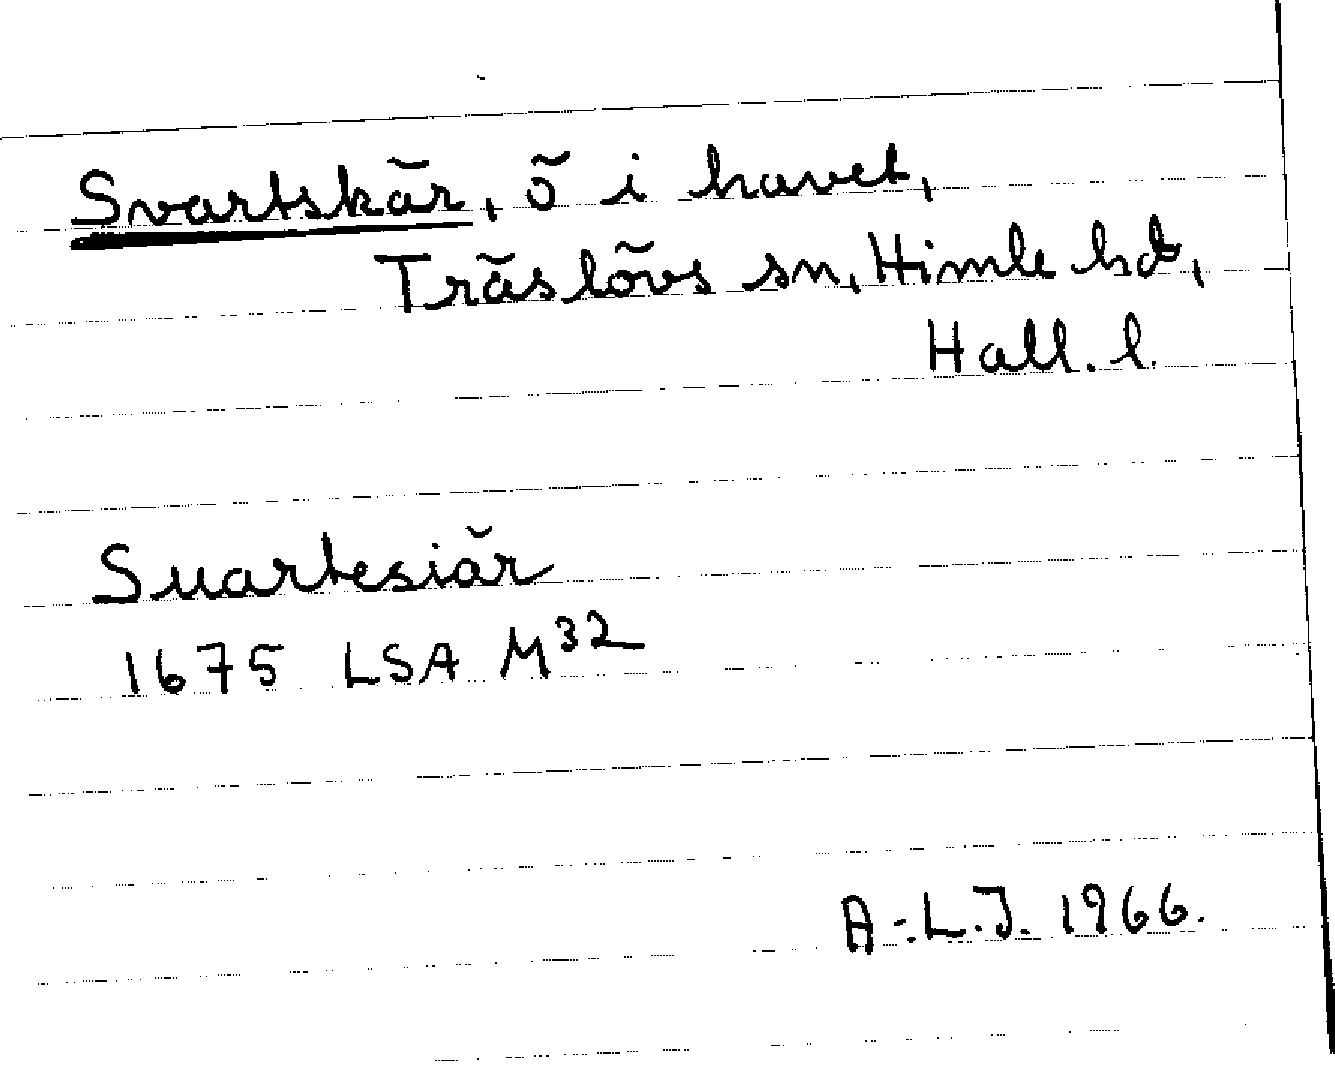 Svartskär, ö i havet,
Träslövs sn, Himle hd,
Hall. l.
Suartesiär
1675 LSA M32
A-L.J. 1966.